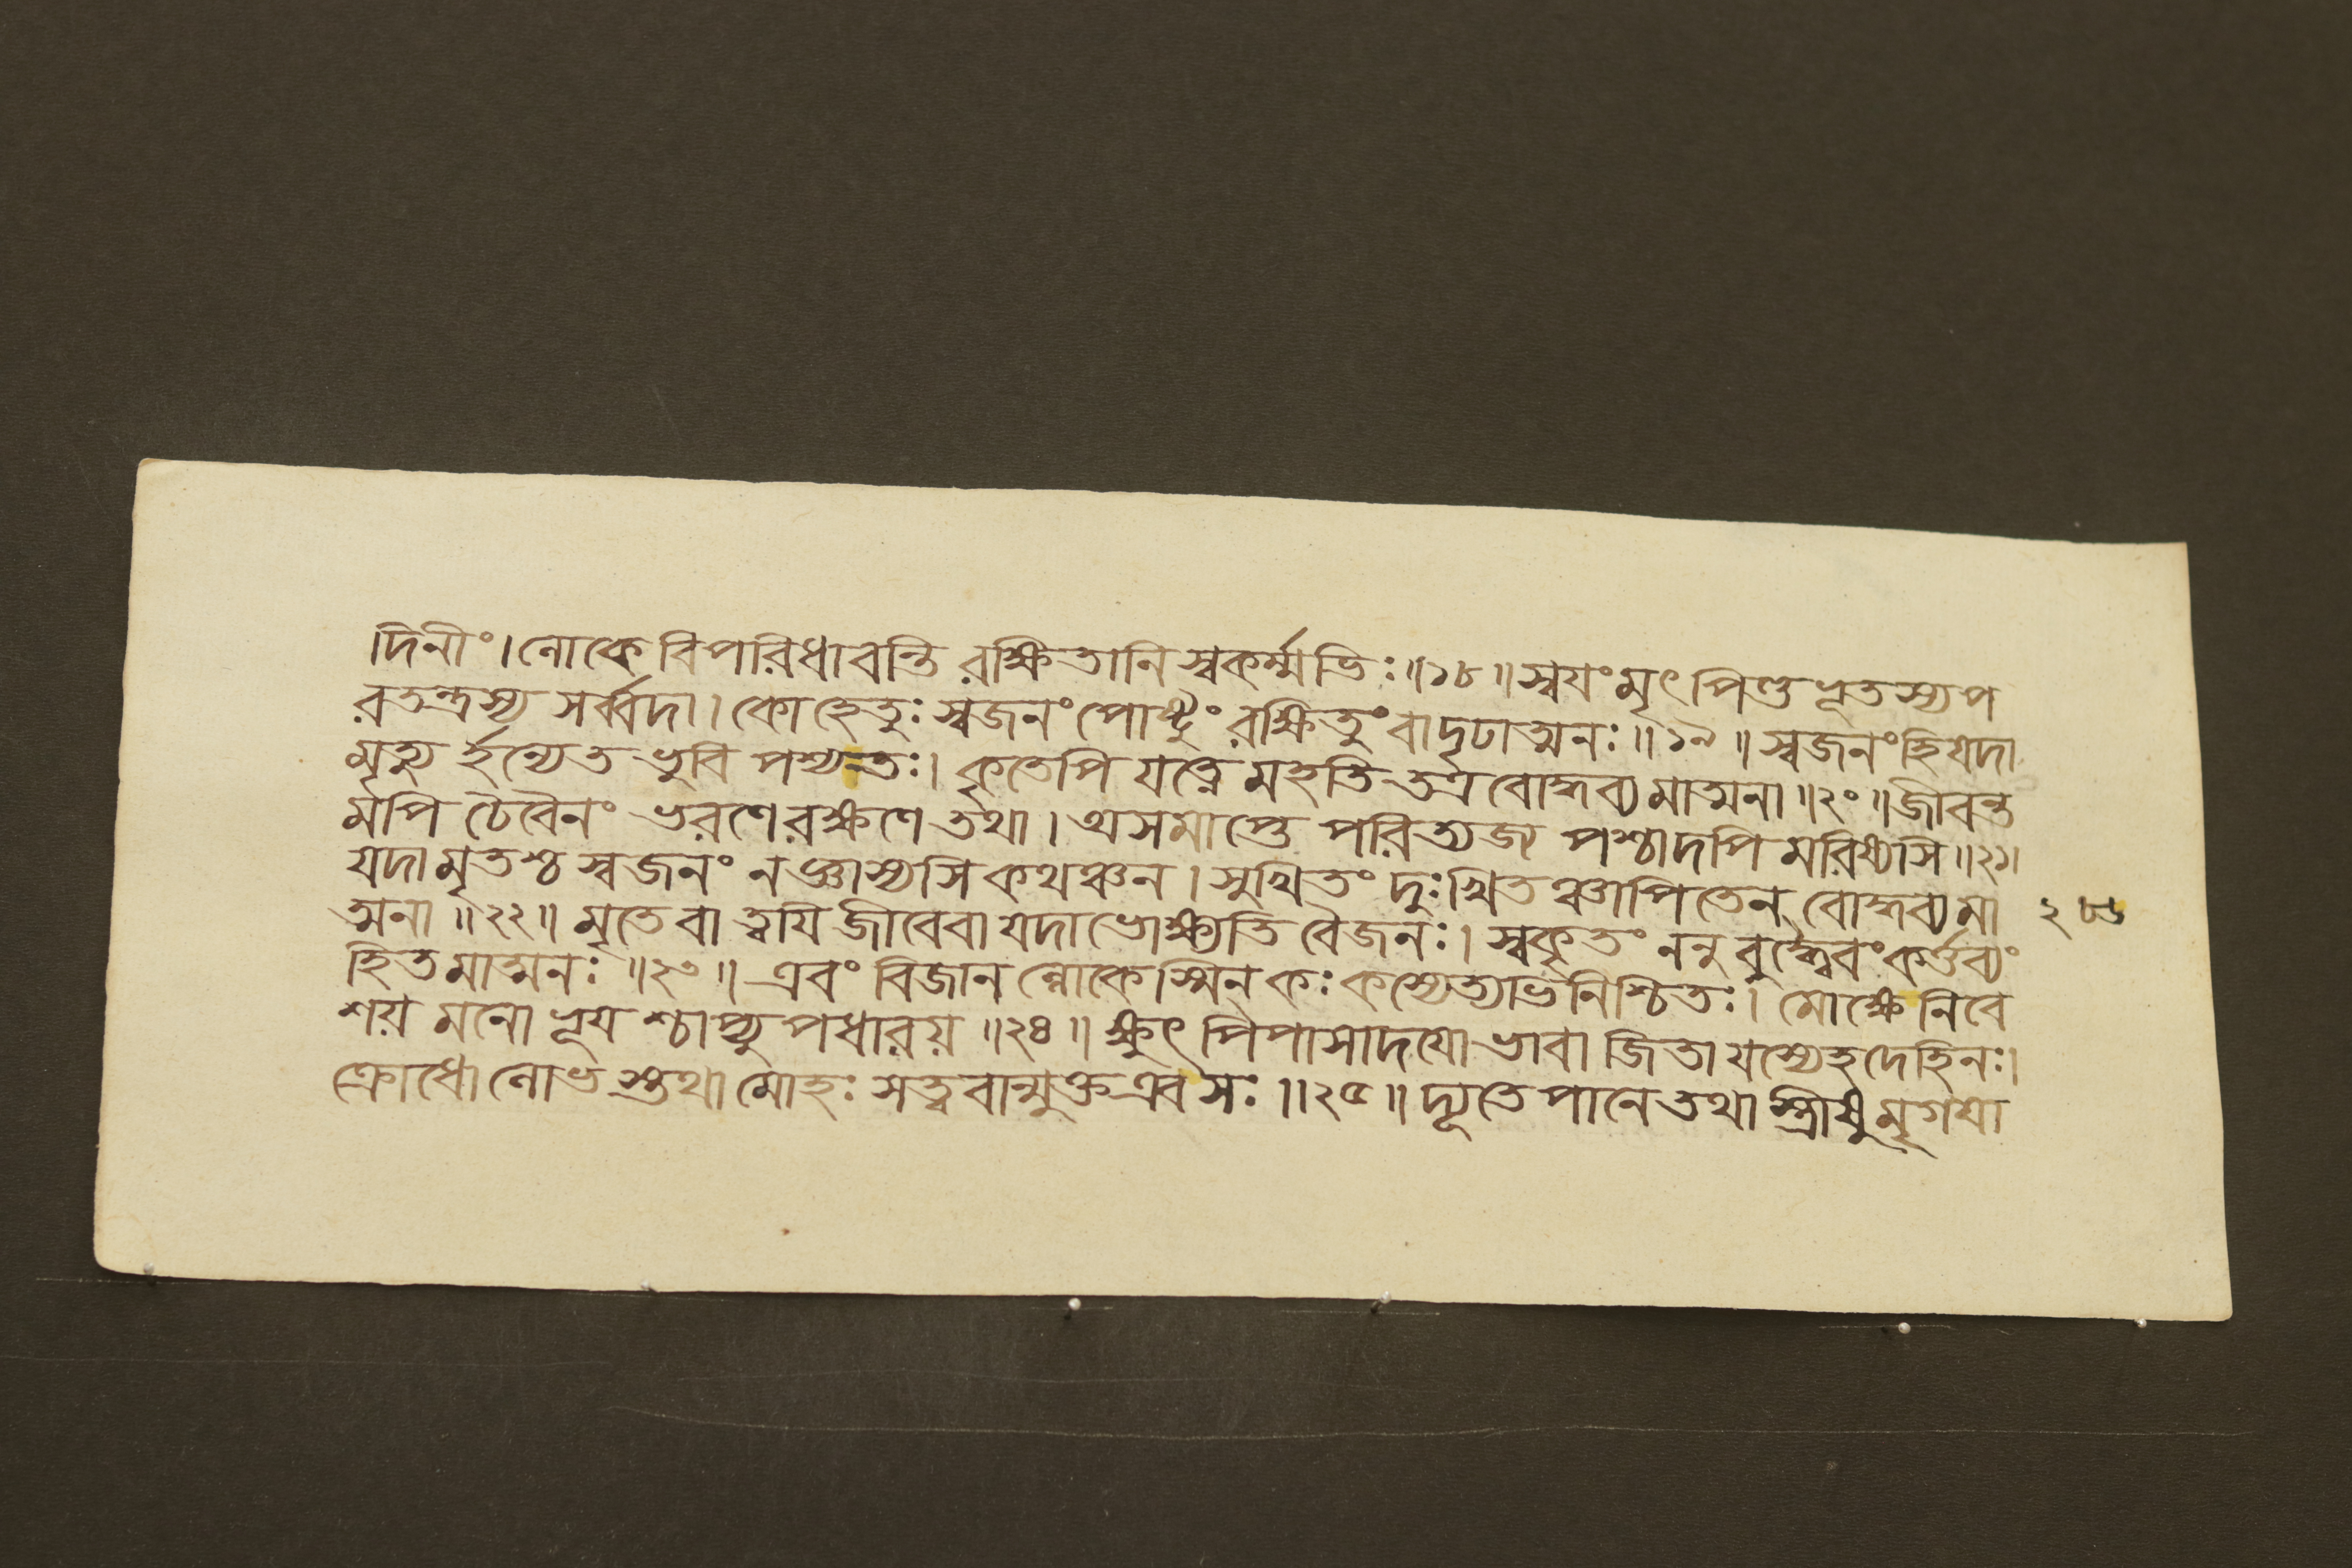 দিনীং। লোকে বিপরিধাবন্তি রক্ষিতানি স্বকর্ম্মভিঃ॥১৮॥ স্বয়ং মৃৎপিণ্ডভূতস্য প
রতন্ত্রস্য সর্ব্বদা। কো হেতুঃ স্বজনং পোষ্টুং রক্ষিতুং বাদৃঢাত্মনঃ॥১৯॥ স্বজনং হি যদা
মৃত্যুর্হন্ত্যেত ভুবি পশ্যন্তঃ। কৃতেপি যত্নে মহতি তত্র বোদ্ধব্যমাত্মনা॥২০॥ জীবন্ত
মপি চৈবৈনং ভরণে রক্ষণে তথা। অসমাপ্তে পরিত্যজ্য পশ্চাদপি মরিষ্যসি॥২১॥
যদা মৃতশ্চ স্বজনং ন জ্ঞাস্যসি কথঞ্চন। সুখিতং দুঃখিতঞ্চাপি তেন বোদ্ধব্যমা
ত্মনা॥২২॥ মৃতে বা ত্বয়ি জীবে বা যদা ভোক্ষ্যতি বৈ জনঃ। স্বকৃতং ননু বুদ্ধ্বৈবং কর্ত্তব্যং
হিতমাত্মনঃ॥২৩॥ এবং বিজানল্লোকেস্মিন কঃ কস্যেত্যভিনিশ্চিতঃ। মোক্ষে নিবে
শয় মনো ভূয়শ্চাপ্যুপধারয়॥২৪॥ ক্ষুৎপিপাসাদয়ো ভাবা জিতা যস্যেহ দেহিনঃ।
ক্রোধো লোভস্তথা মোহঃ সত্ত্ববান্মুক্ত এব সঃ॥২৫॥ দ্যূতে পানে তথা স্ত্রীষু মৃগয়া